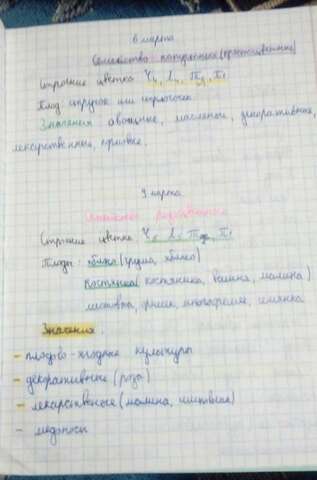 6 марта
Семейство капустных (крестоцветные)
Строение цветка Ч4, Л4, Т П1
Плод: стручок или стручочек
Значения: овощные, масленые, декоративные,
лекарственные, кормовые.
9 марта
Семейство розоцветные
Строение цветка Ч5 Л5 Т∞, П1
Плоды: яблоко (груша, яблоко)
Костянка (костянка, вишня, малина)
листовка, орешек, многоорешек, семянка
Значения.
- плодово-ягодные культуры
- декоративные (роза)
- лекарственные (малина, шиповник)
- медоносы